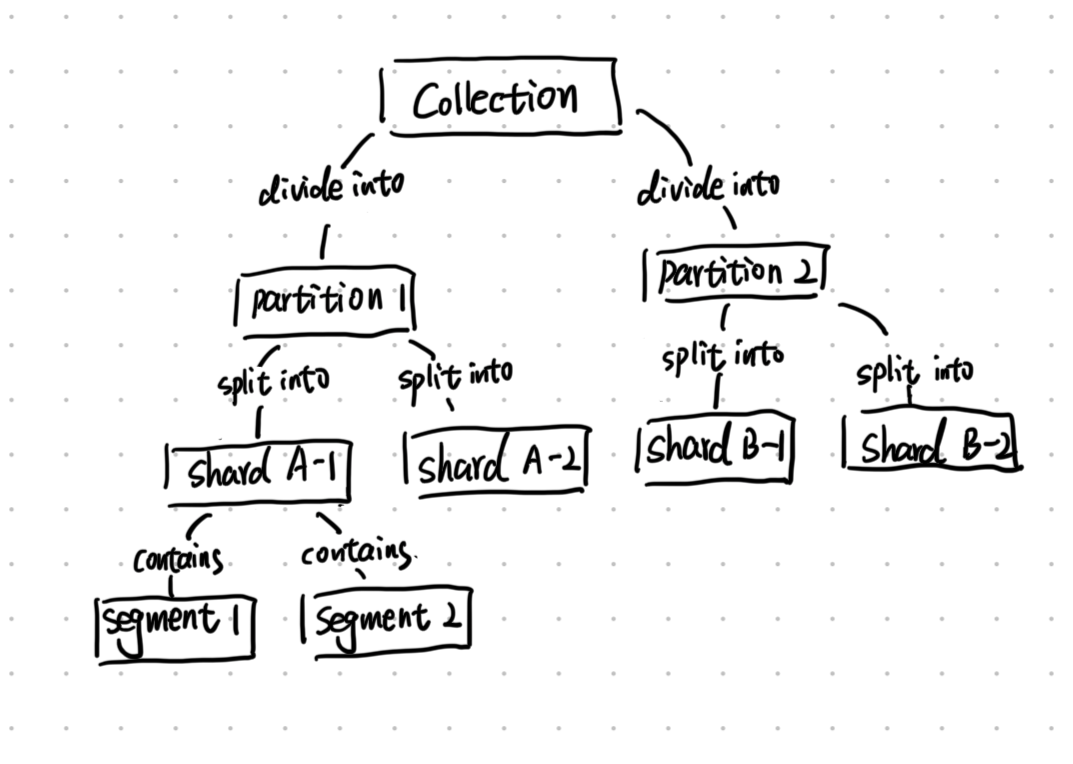 Collection
divide into
divide into
partition 1
partition 2
split into
split into
split into
split into
shard A-1
shard A-2
shard B-1
shard B-2
contains
contains.
segment 1
segment 2